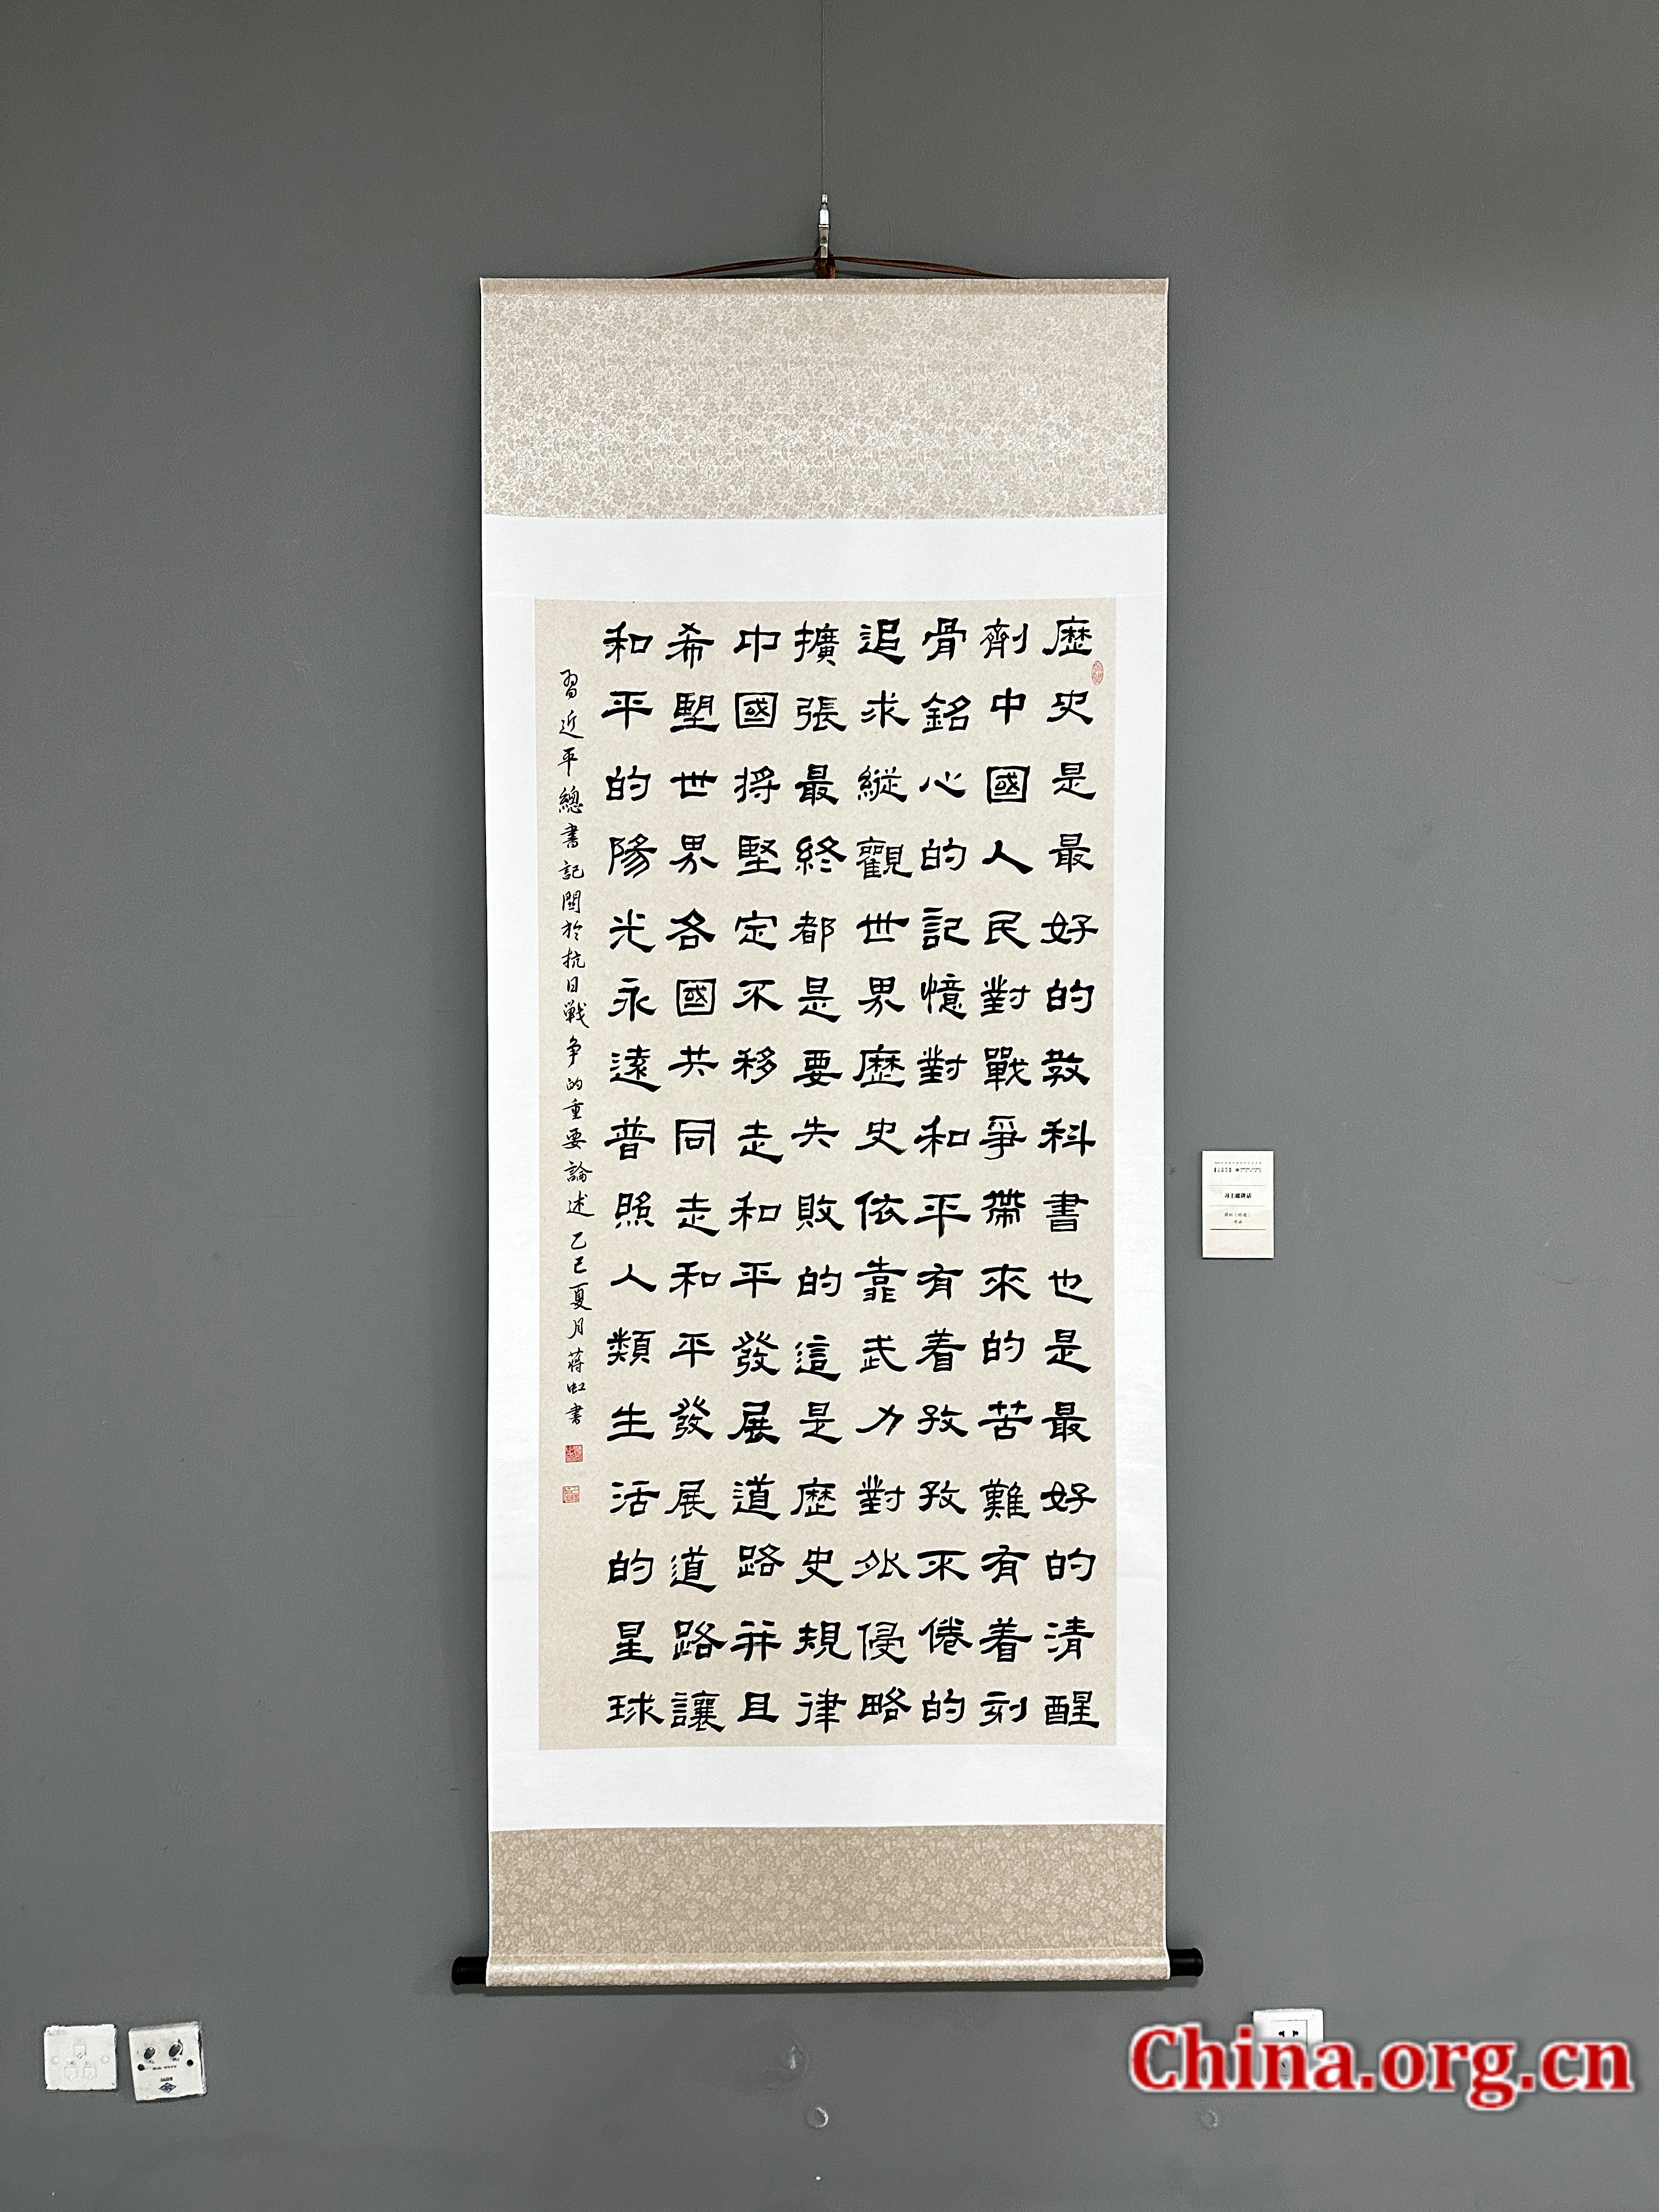 歷史是最好的教科書也是最好的清醒
劑中國人民對戰爭帶來的苦難有着刻
骨銘心的記憶對和平有着孜孜不倦的
追求縱觀世界歷史依靠武力對外侵略
擴張最終都是要失敗的這是歷史規律
中國將堅定不移走和平發展道路并且
希望世界各國共同走和平發展道路讓
和平的陽光永遠普照人類生活的星球
習近平總書記關於抗日戰争的重要論述乙巳夏月蔣虹書
习主席讲话
China.org.cn